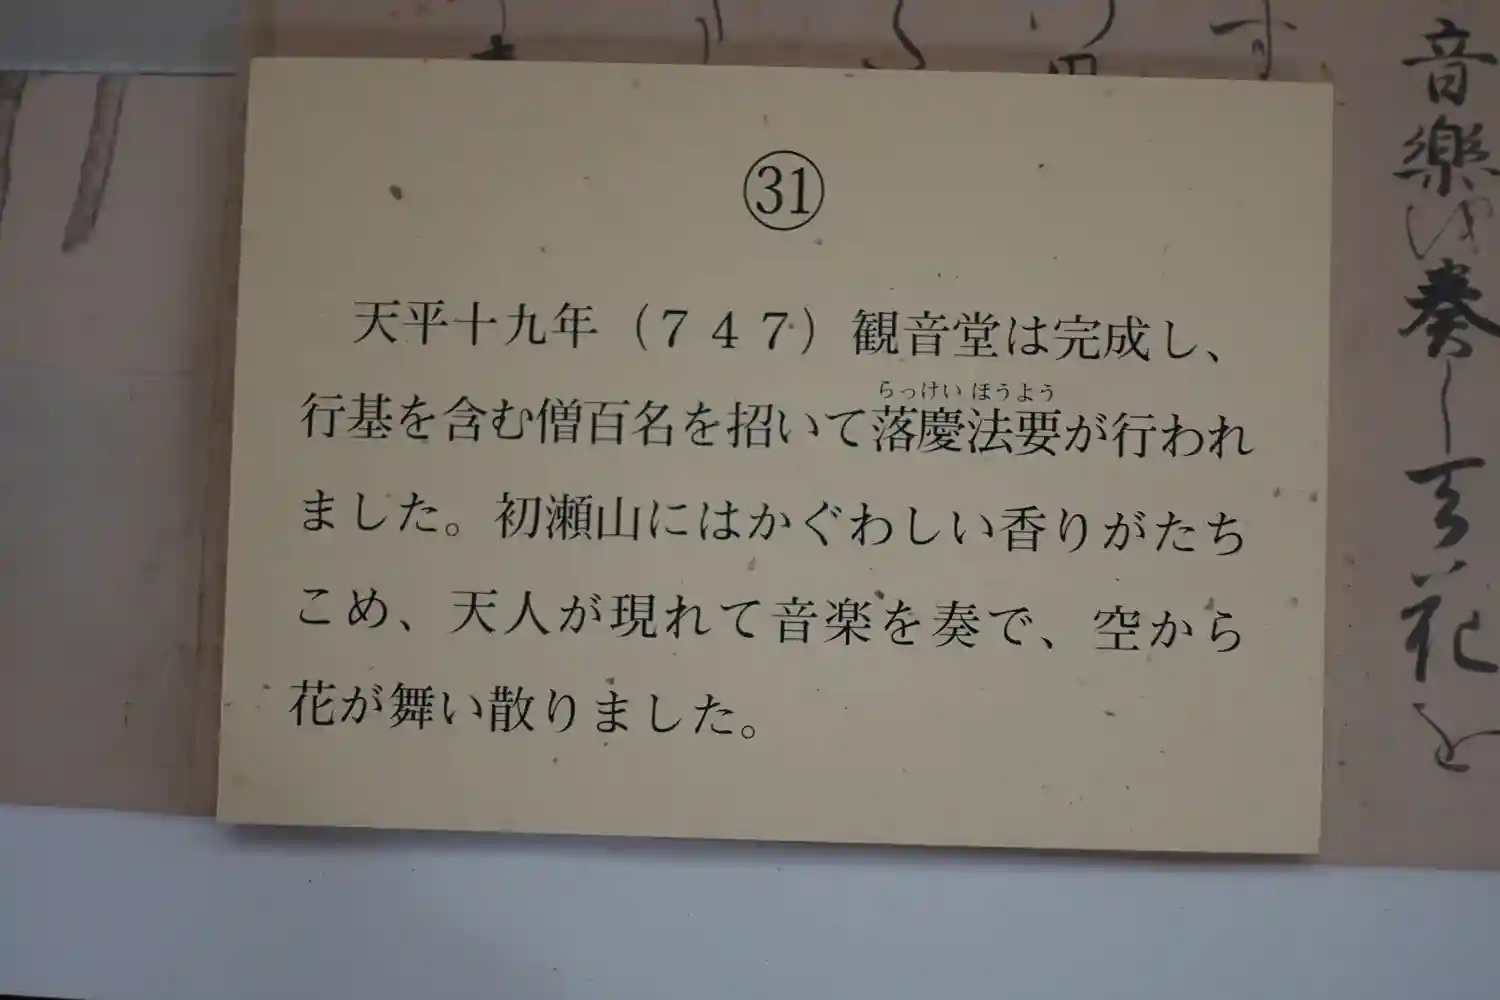 ㉛
天平十九年（７４７）観音堂は完成し、
行基を含む僧百名を招いて落慶法要が行われ
らっけい ほうよう
ました。初瀬山にはかぐわしい香りがたち
こめ、天人が現れて音楽を奏で、空から
花が舞い散りました。
音樂を奏し天花を